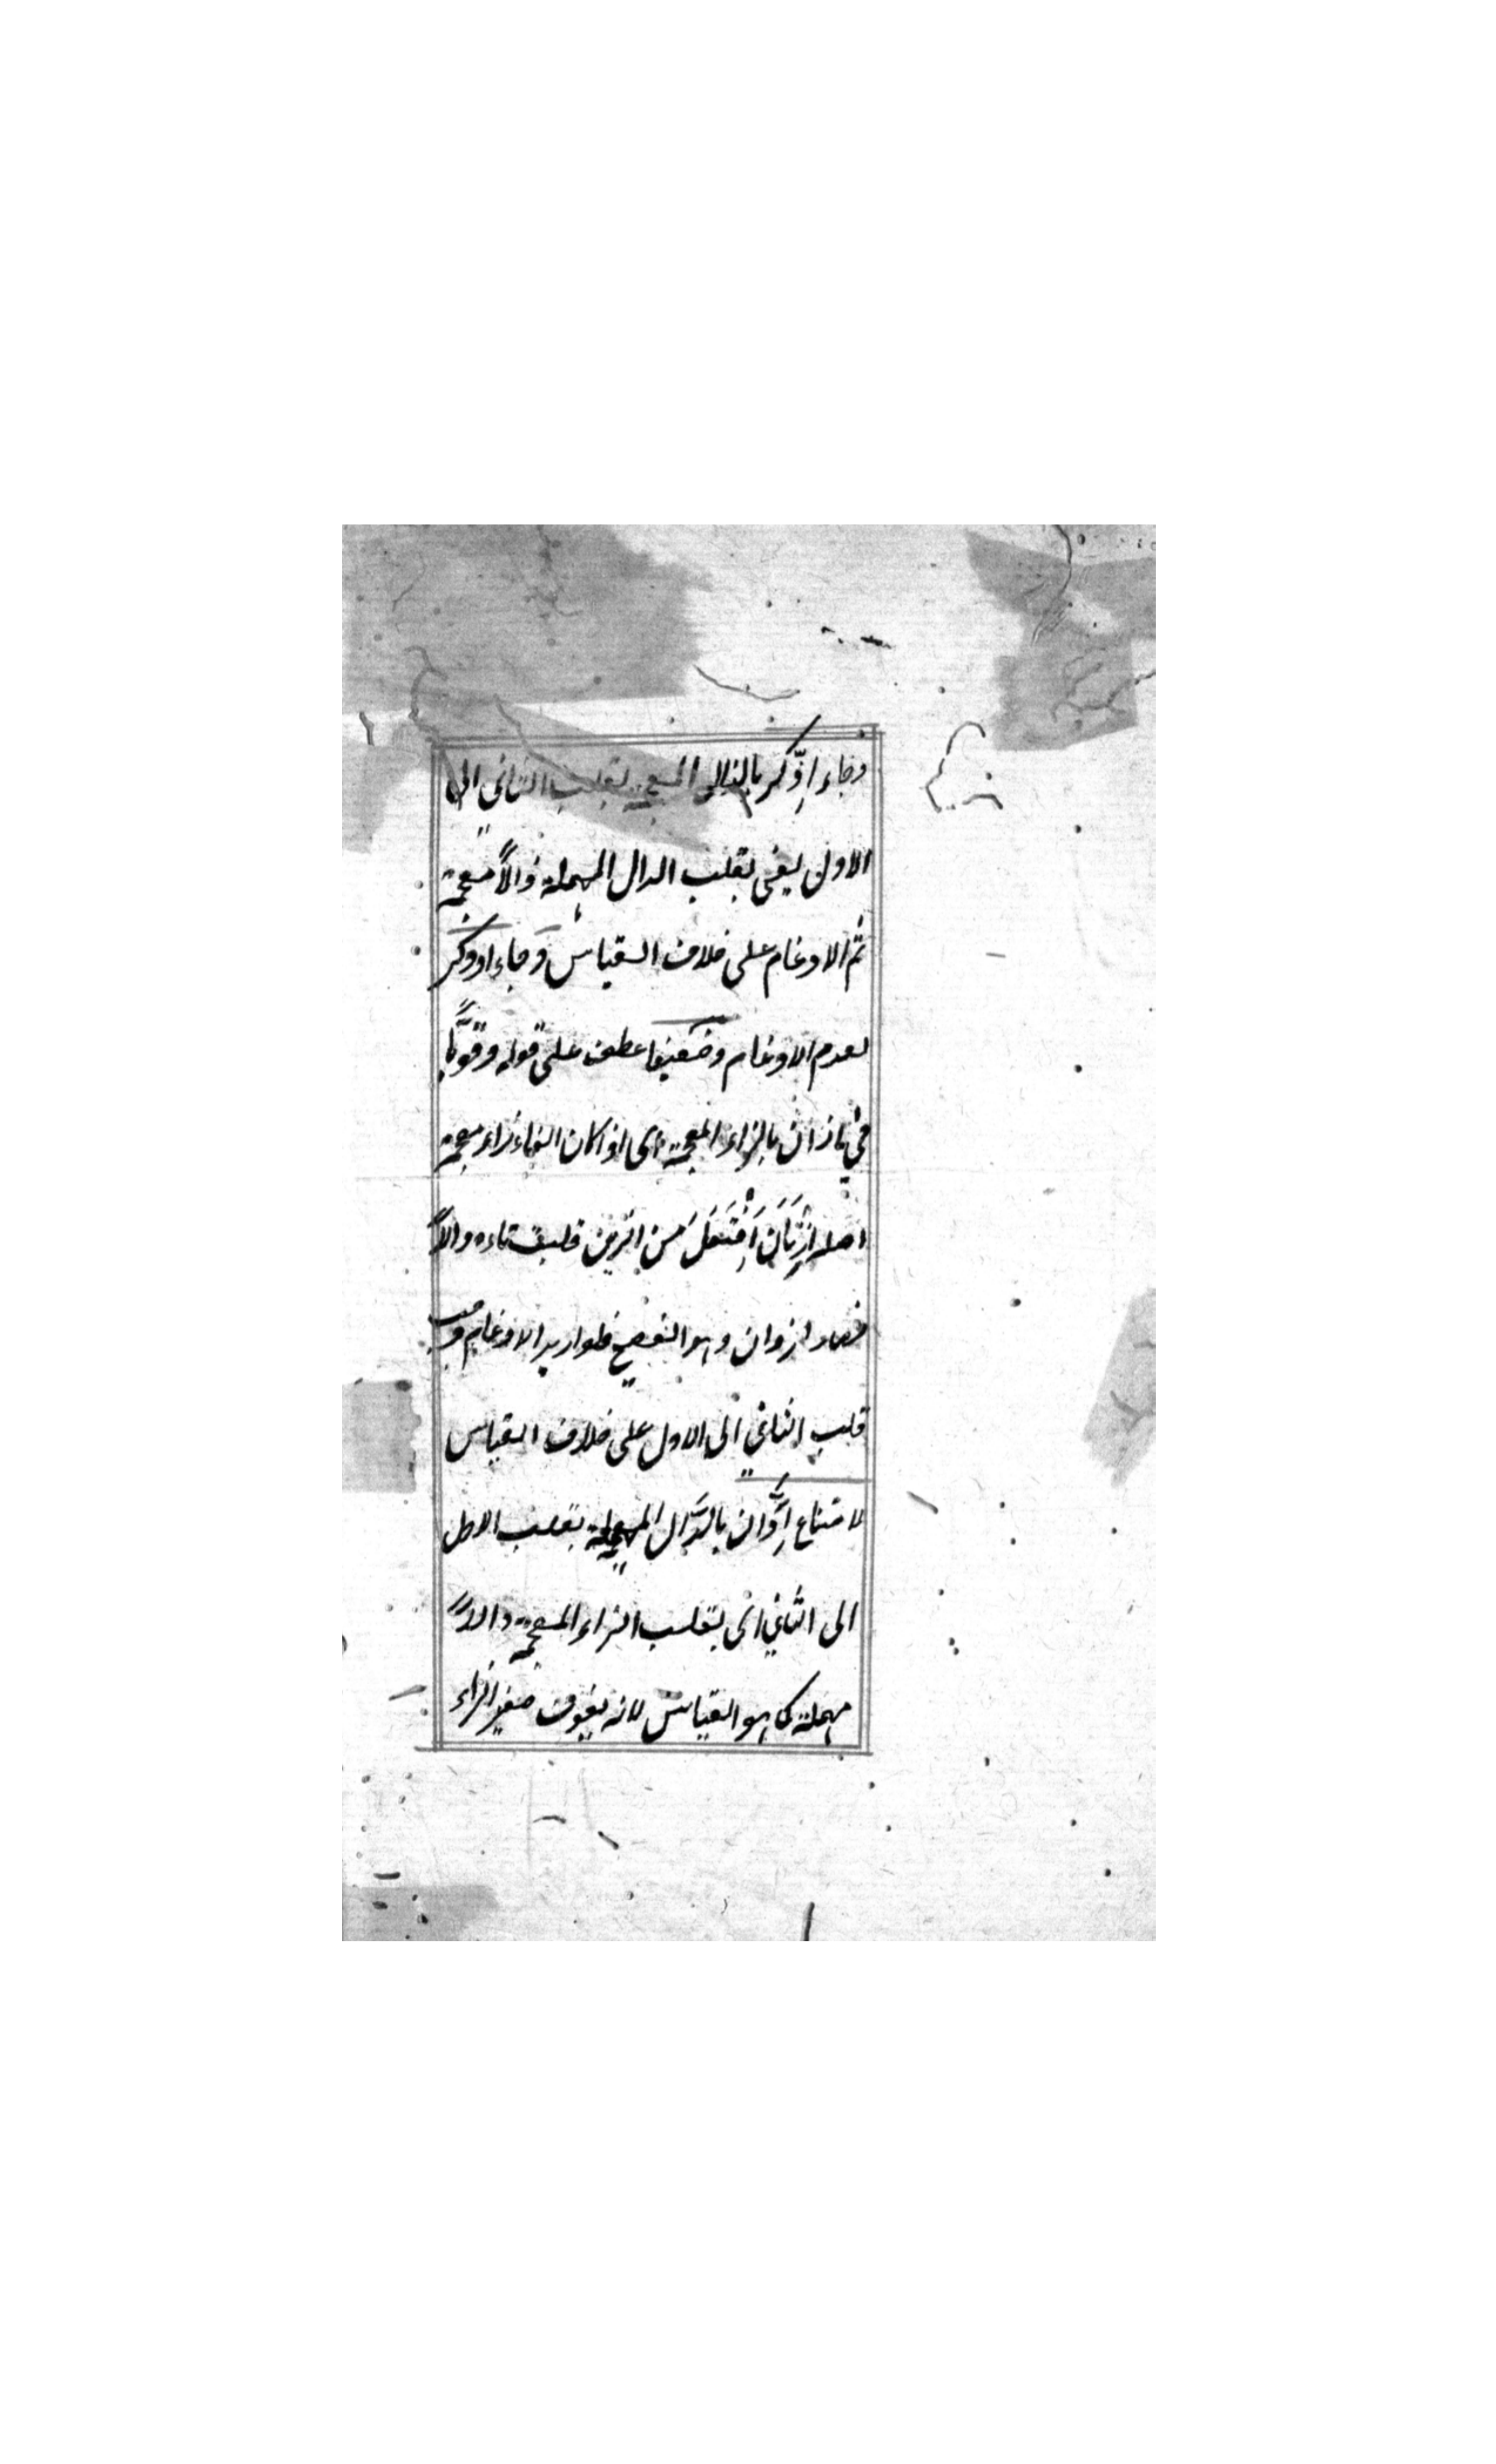 وجاء اِذّكر بالذال المعجمة بقلب الثاني الى
الاول يعني بقلب الدال المهملة ذالاً معجمة
ثم الادغام على خلاف القياس وجاء اذدكر
بعدم الادغام وضعيفا عطف على قوله وقويًّا
في يازان بالزاء المعجمة اى اذا كان الفاء زاء معجمة
اصله اِزْتَانَ اِفْتَعَلَ من الزين قلبت تاءه دالاً
فصار ازدان وهو الفصيح فلو اريد الادغام وجب
قلب الثاني الى الاول على خلاف القياس
لامتناع اِدَّان بالدَّال المهملة بقلب الاول
الى الثاني اى بقلب الزاء المعجمة دالاً
مهملة كما هو القياس لانه يفوت صفير الزاء